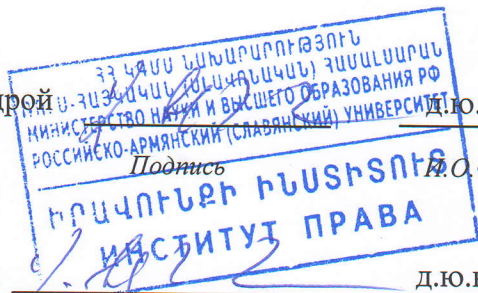 ՀՀ ԿԳՄՍ ՆԱԽԱՐԱՐՈՒԹՅՈՒՆ
ՀԱՅԿԱԿԱՆ (ՍԼԱՎՈՆԱԿԱՆ) ՀԱՄԱԼՍԱՐԱՆ
дрой МИНИСТЕРСТВО НАУКИ И ВЫСШЕГО ОБРАЗОВАНИЯ РФ д.ю.
РОССИЙСКО-АРМЯНСКИЙ (СЛАВЯНСКИЙ) УНИВЕРСИТЕТ
Подпись И.О.
ԻՐԱՎՈՒՆՔԻ ԻՆՍՏԻՏՈՒՏ
ИНСТИТУТ ПРАВА
д.ю.